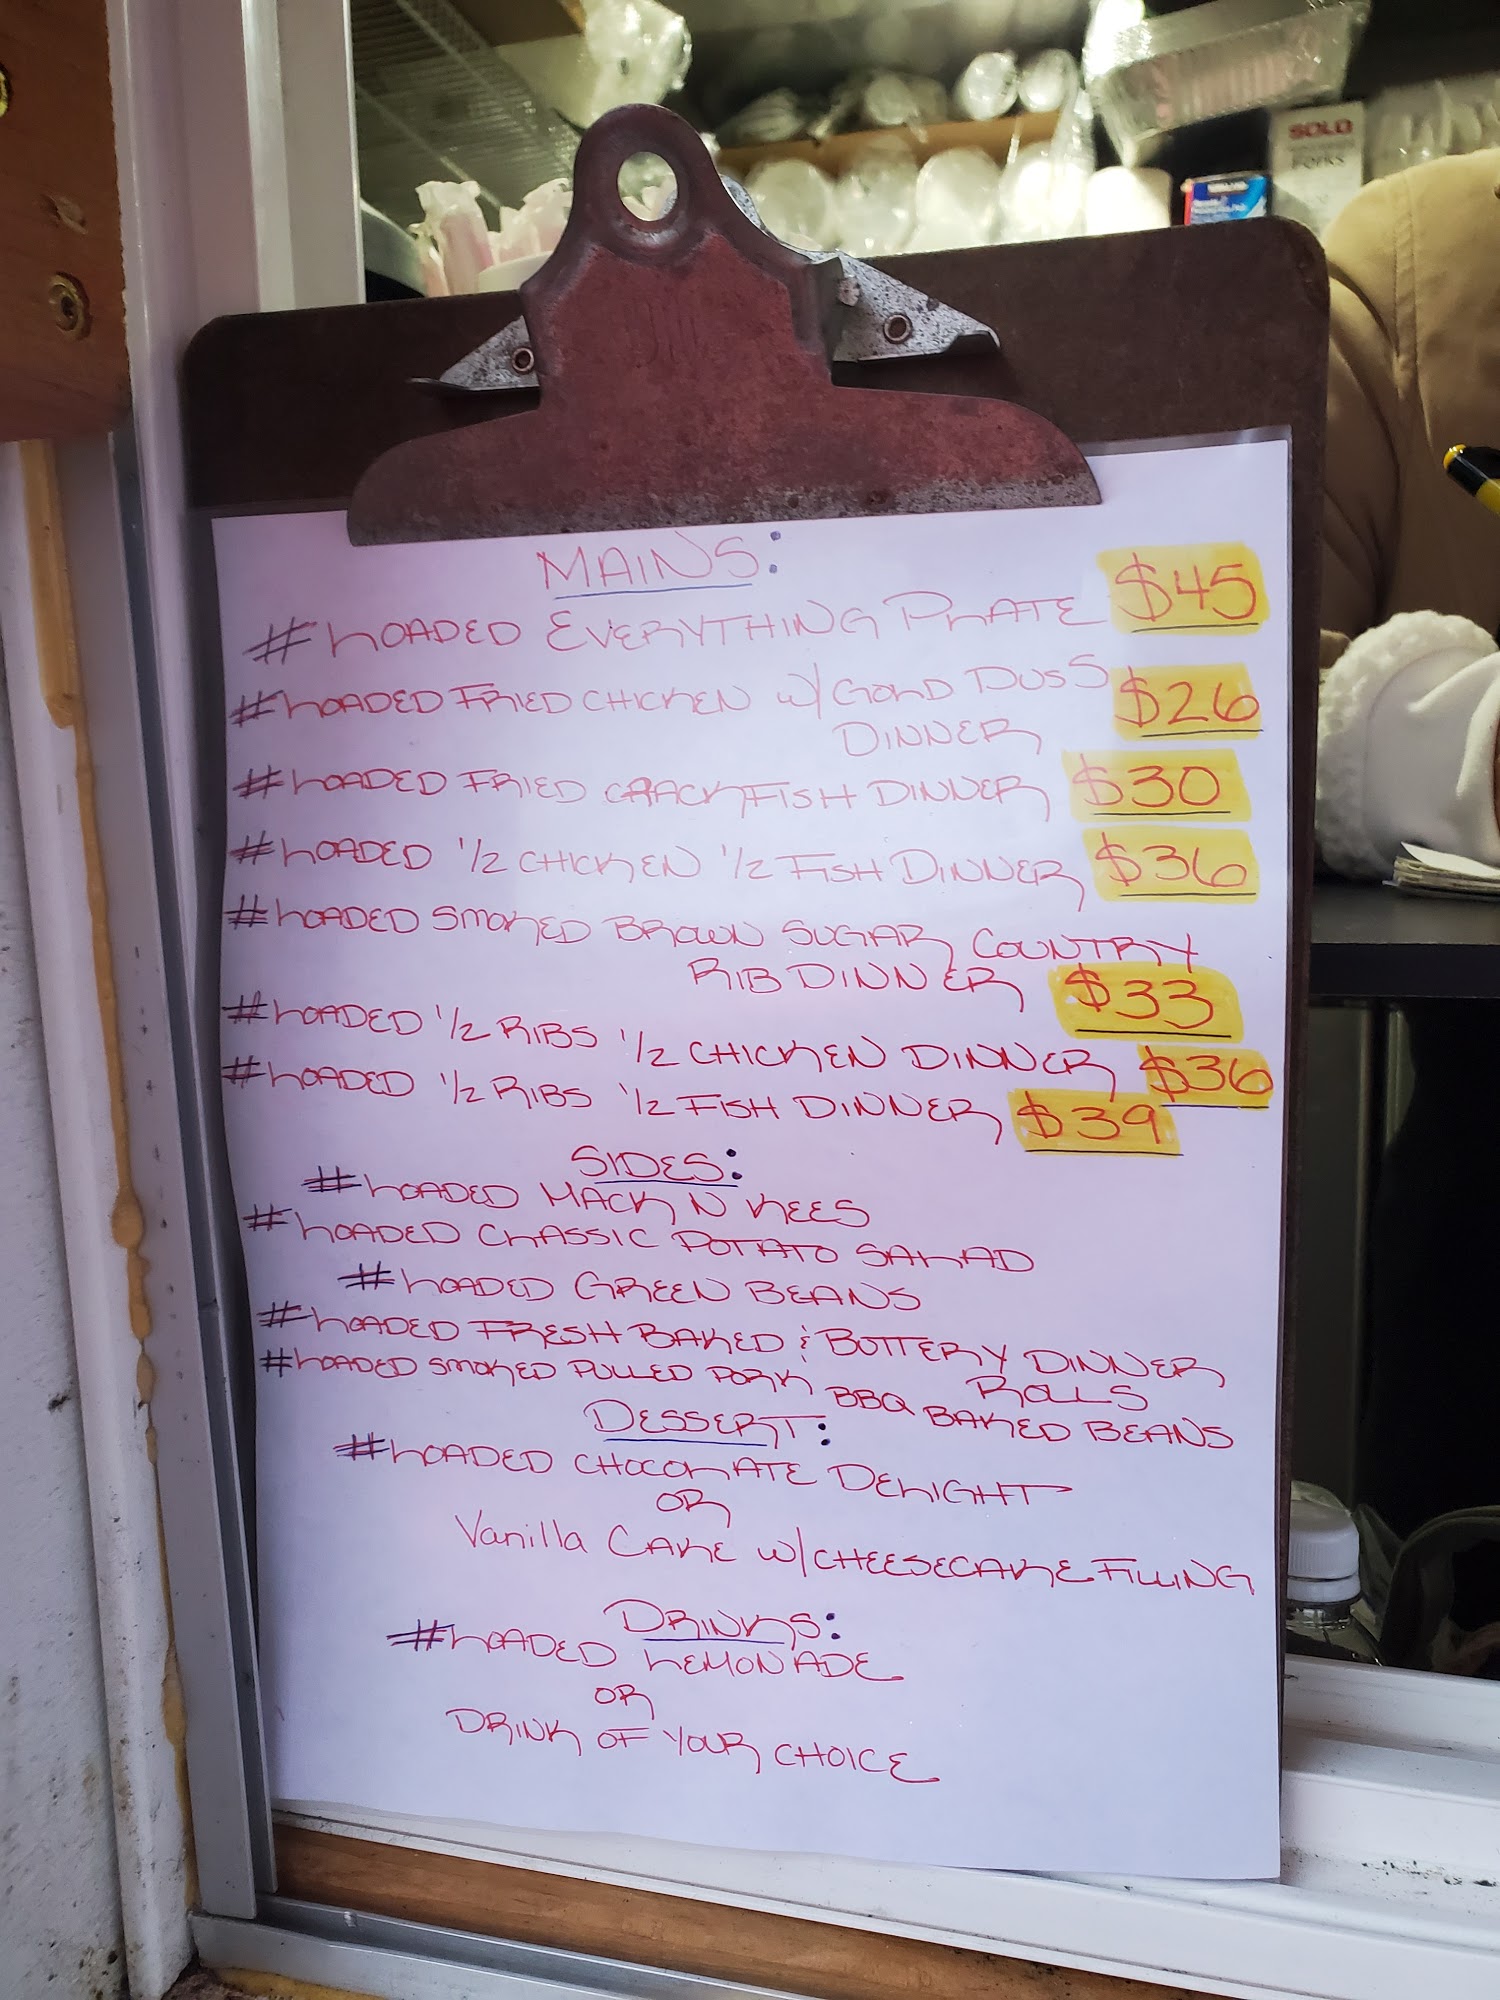 MAINS:
#LOADED EVERYTHING PLATE $45
#LOADED FRIED CHICKEN W/ GOLD DUSS $26
DINNER
#LOADED FRIED CRACKFISH DINNER $30
#LOADED 1/2 CHICKEN 1/2 FISH DINNER $36
#LOADED SMOKED BROWN SUGAR COUNTRY
RIB DINNER $33
#LOADED 1/2 RIBS 1/2 CHICKEN DINNER $36
#LOADED 1/2 RIBS 1/2 FISH DINNER $39
SIDES:
#LOADED MACK N KEES
#LOADED CLASSIC POTATO SALAD
#LOADED GREEN BEANS
#LOADED FRESH BAKED & BUTTERY DINNER
ROLLS
#LOADED SMOKED PULLED PORK BBQ BAKED BEANS
DESSERT:
#LOADED CHOCOLATE DELIGHT
OR
Vanilla CAKE W/CHEESECAKE FILLING
DRINKS:
#LOADED LEMONADE
OR
DRINK OF YOUR CHOICE
SOLO
FORKS